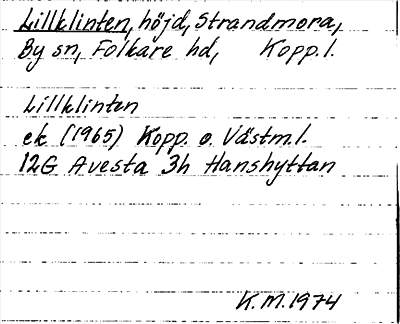 Lillklinten, höjd, Strandmora,
By sn, Folkare hd, Kopp.l.
Lillklinten
ek (1965) Kopp. o. Västm.l.
12G Avesta 3h Hanshyttan
K.M.1974